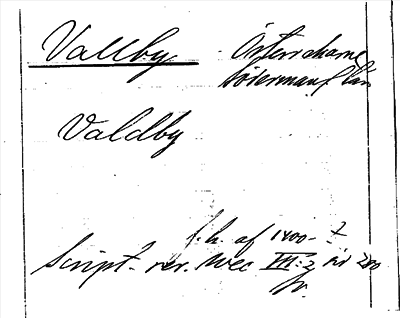 Vallby Österrekarne
Södermanl. län
Valdby
f. h. af 1400-t
Script. rer. svec III:2 sid 200